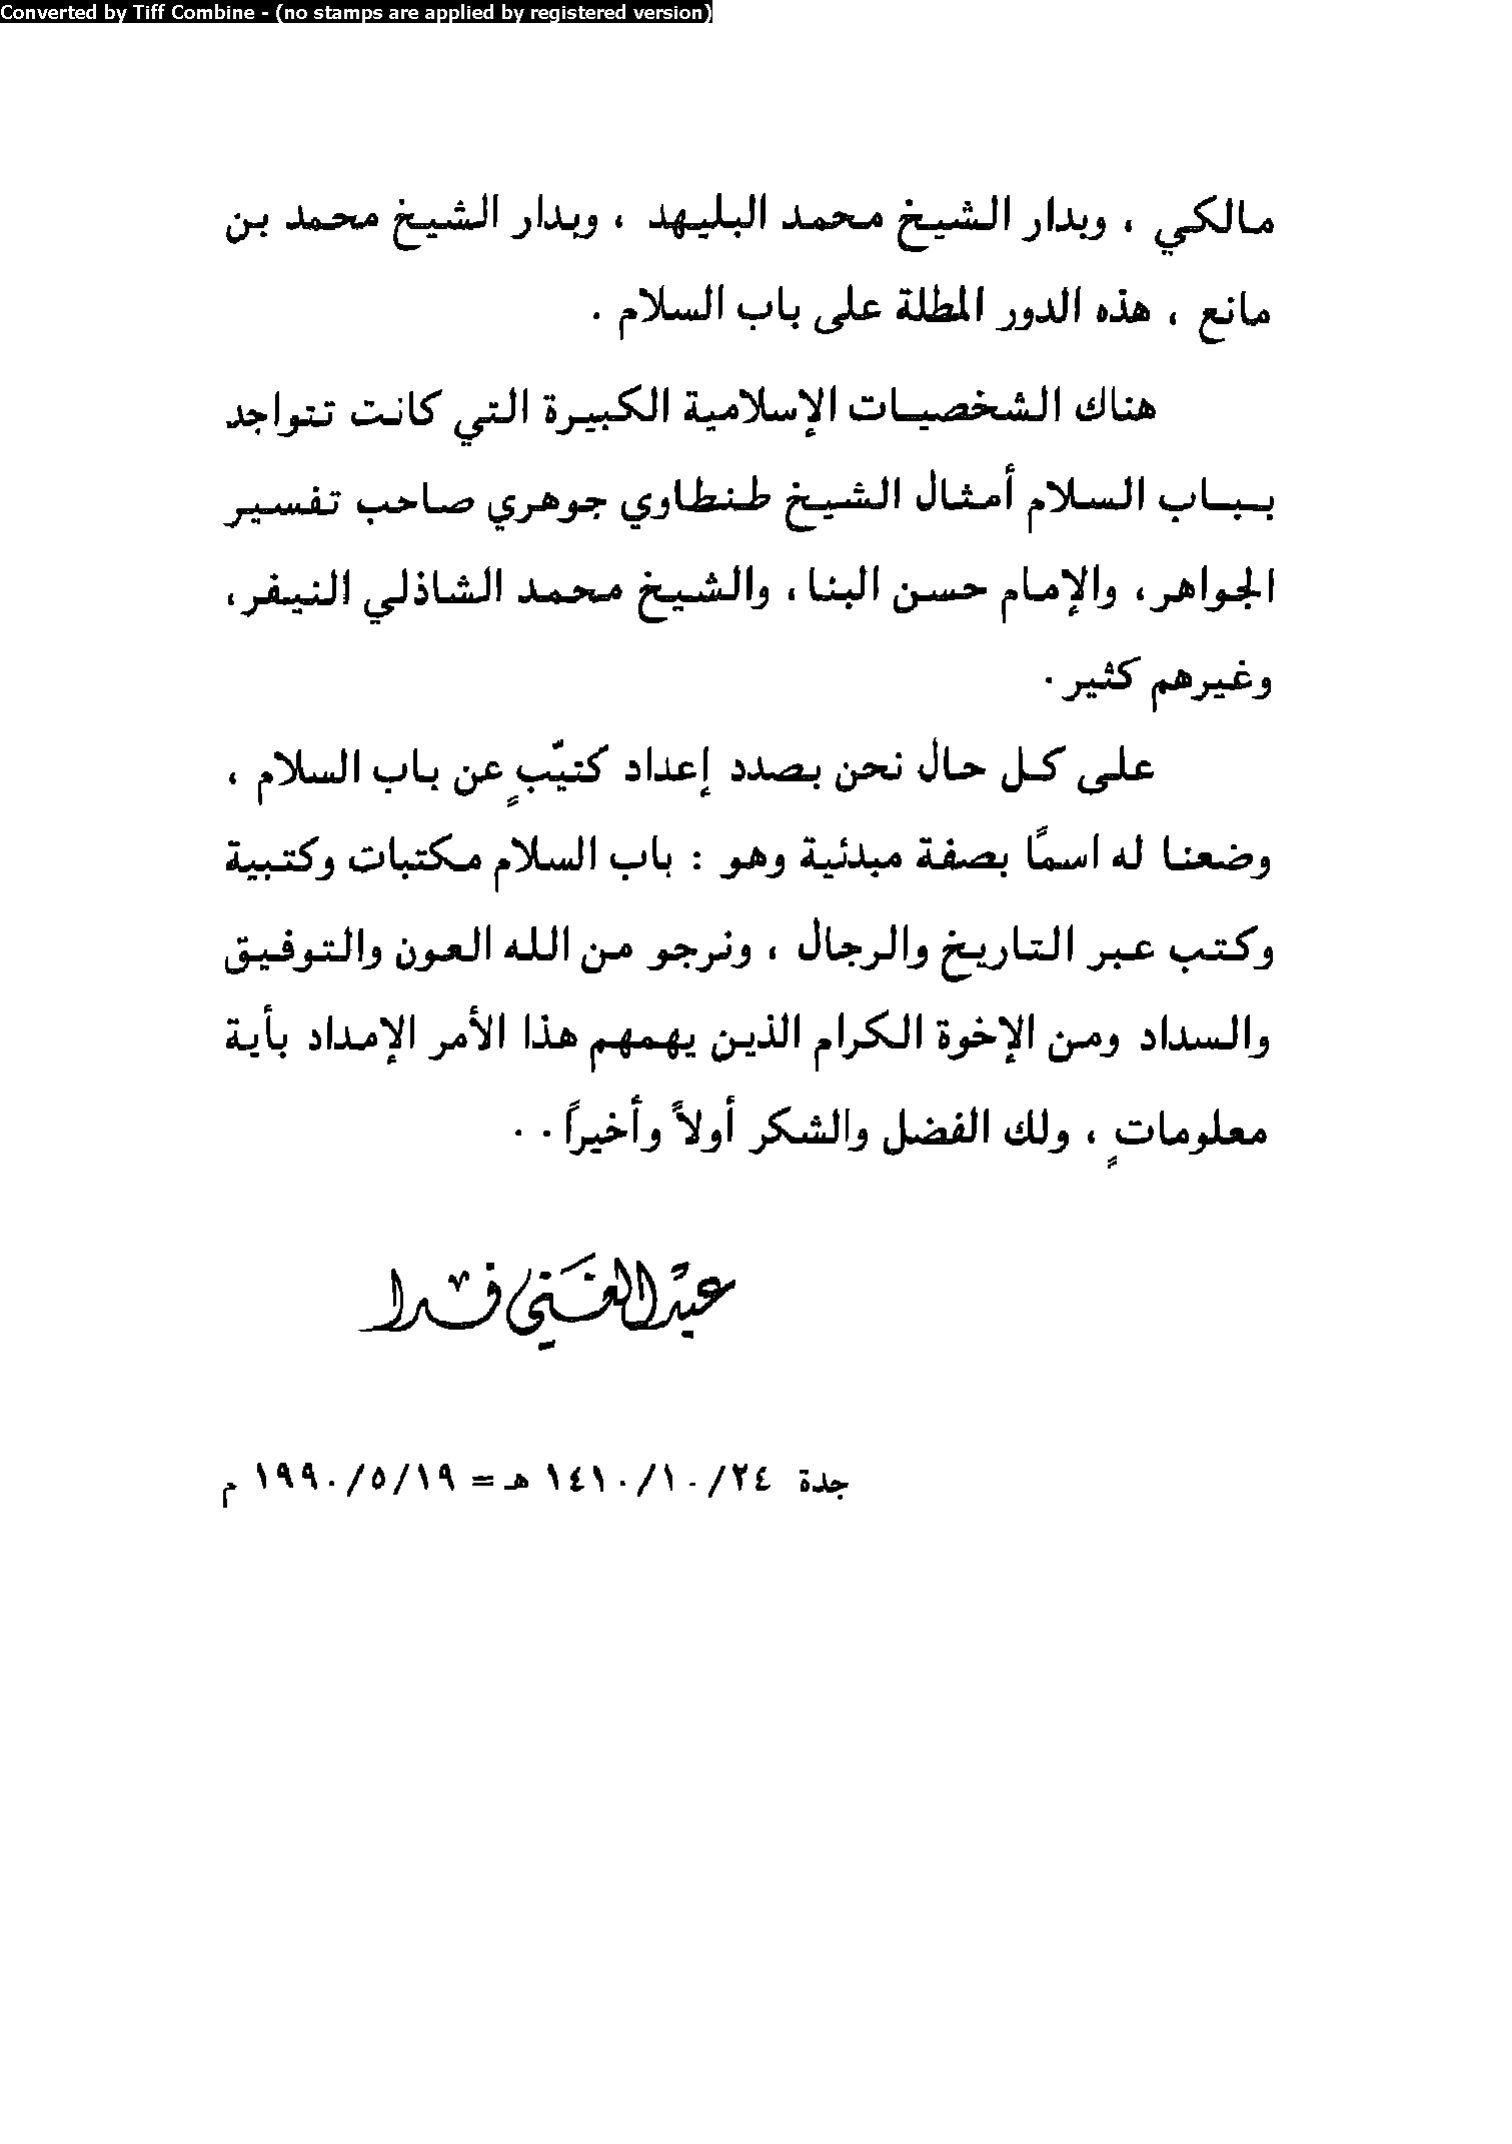 Converted by Tiff Combine - (no stamps are applied by registered version)
مالكي ، وبدار الشيخ محمد البليهد ، وبدار الشيخ محمد بن
مانع ، هذه الدور المطلة على باب السلام .
هناك الشخصيات الإسلامية الكبيرة التي كانت تتواجد
بباب السلام أمثال الشيخ طنطاوي جوهري صاحب تفسير
الجواهر، والإمام حسن البنا، والشيخ محمد الشاذلي النيفر،
وغيرهم كثير.
على كل حال نحن بصدد إعداد كتيّبٍ عن باب السلام ،
وضعنا له اسمًا بصفة مبدئية وهو : باب السلام مكتبات وكتبية
وكتب عبر التاريخ والرجال ، ونرجو من الله العون والتوفيق
والسداد ومن الإخوة الكرام الذين يهمهم هذا الأمر الإمداد بأية
معلوماتٍ ، ولك الفضل والشكر أولاً وأخيراً . .
عبد الغني فدا
جدة ٢٤/١٠/١٤١٠ هـ = ١٩/٥/١٩٩٠ م